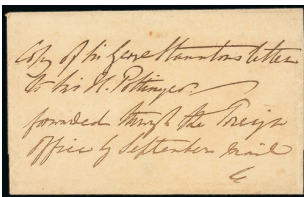 Copy of Sir George Staunton's letter
to Sir H. Pottinger
forwarded through the Foreign
Office by September Mail